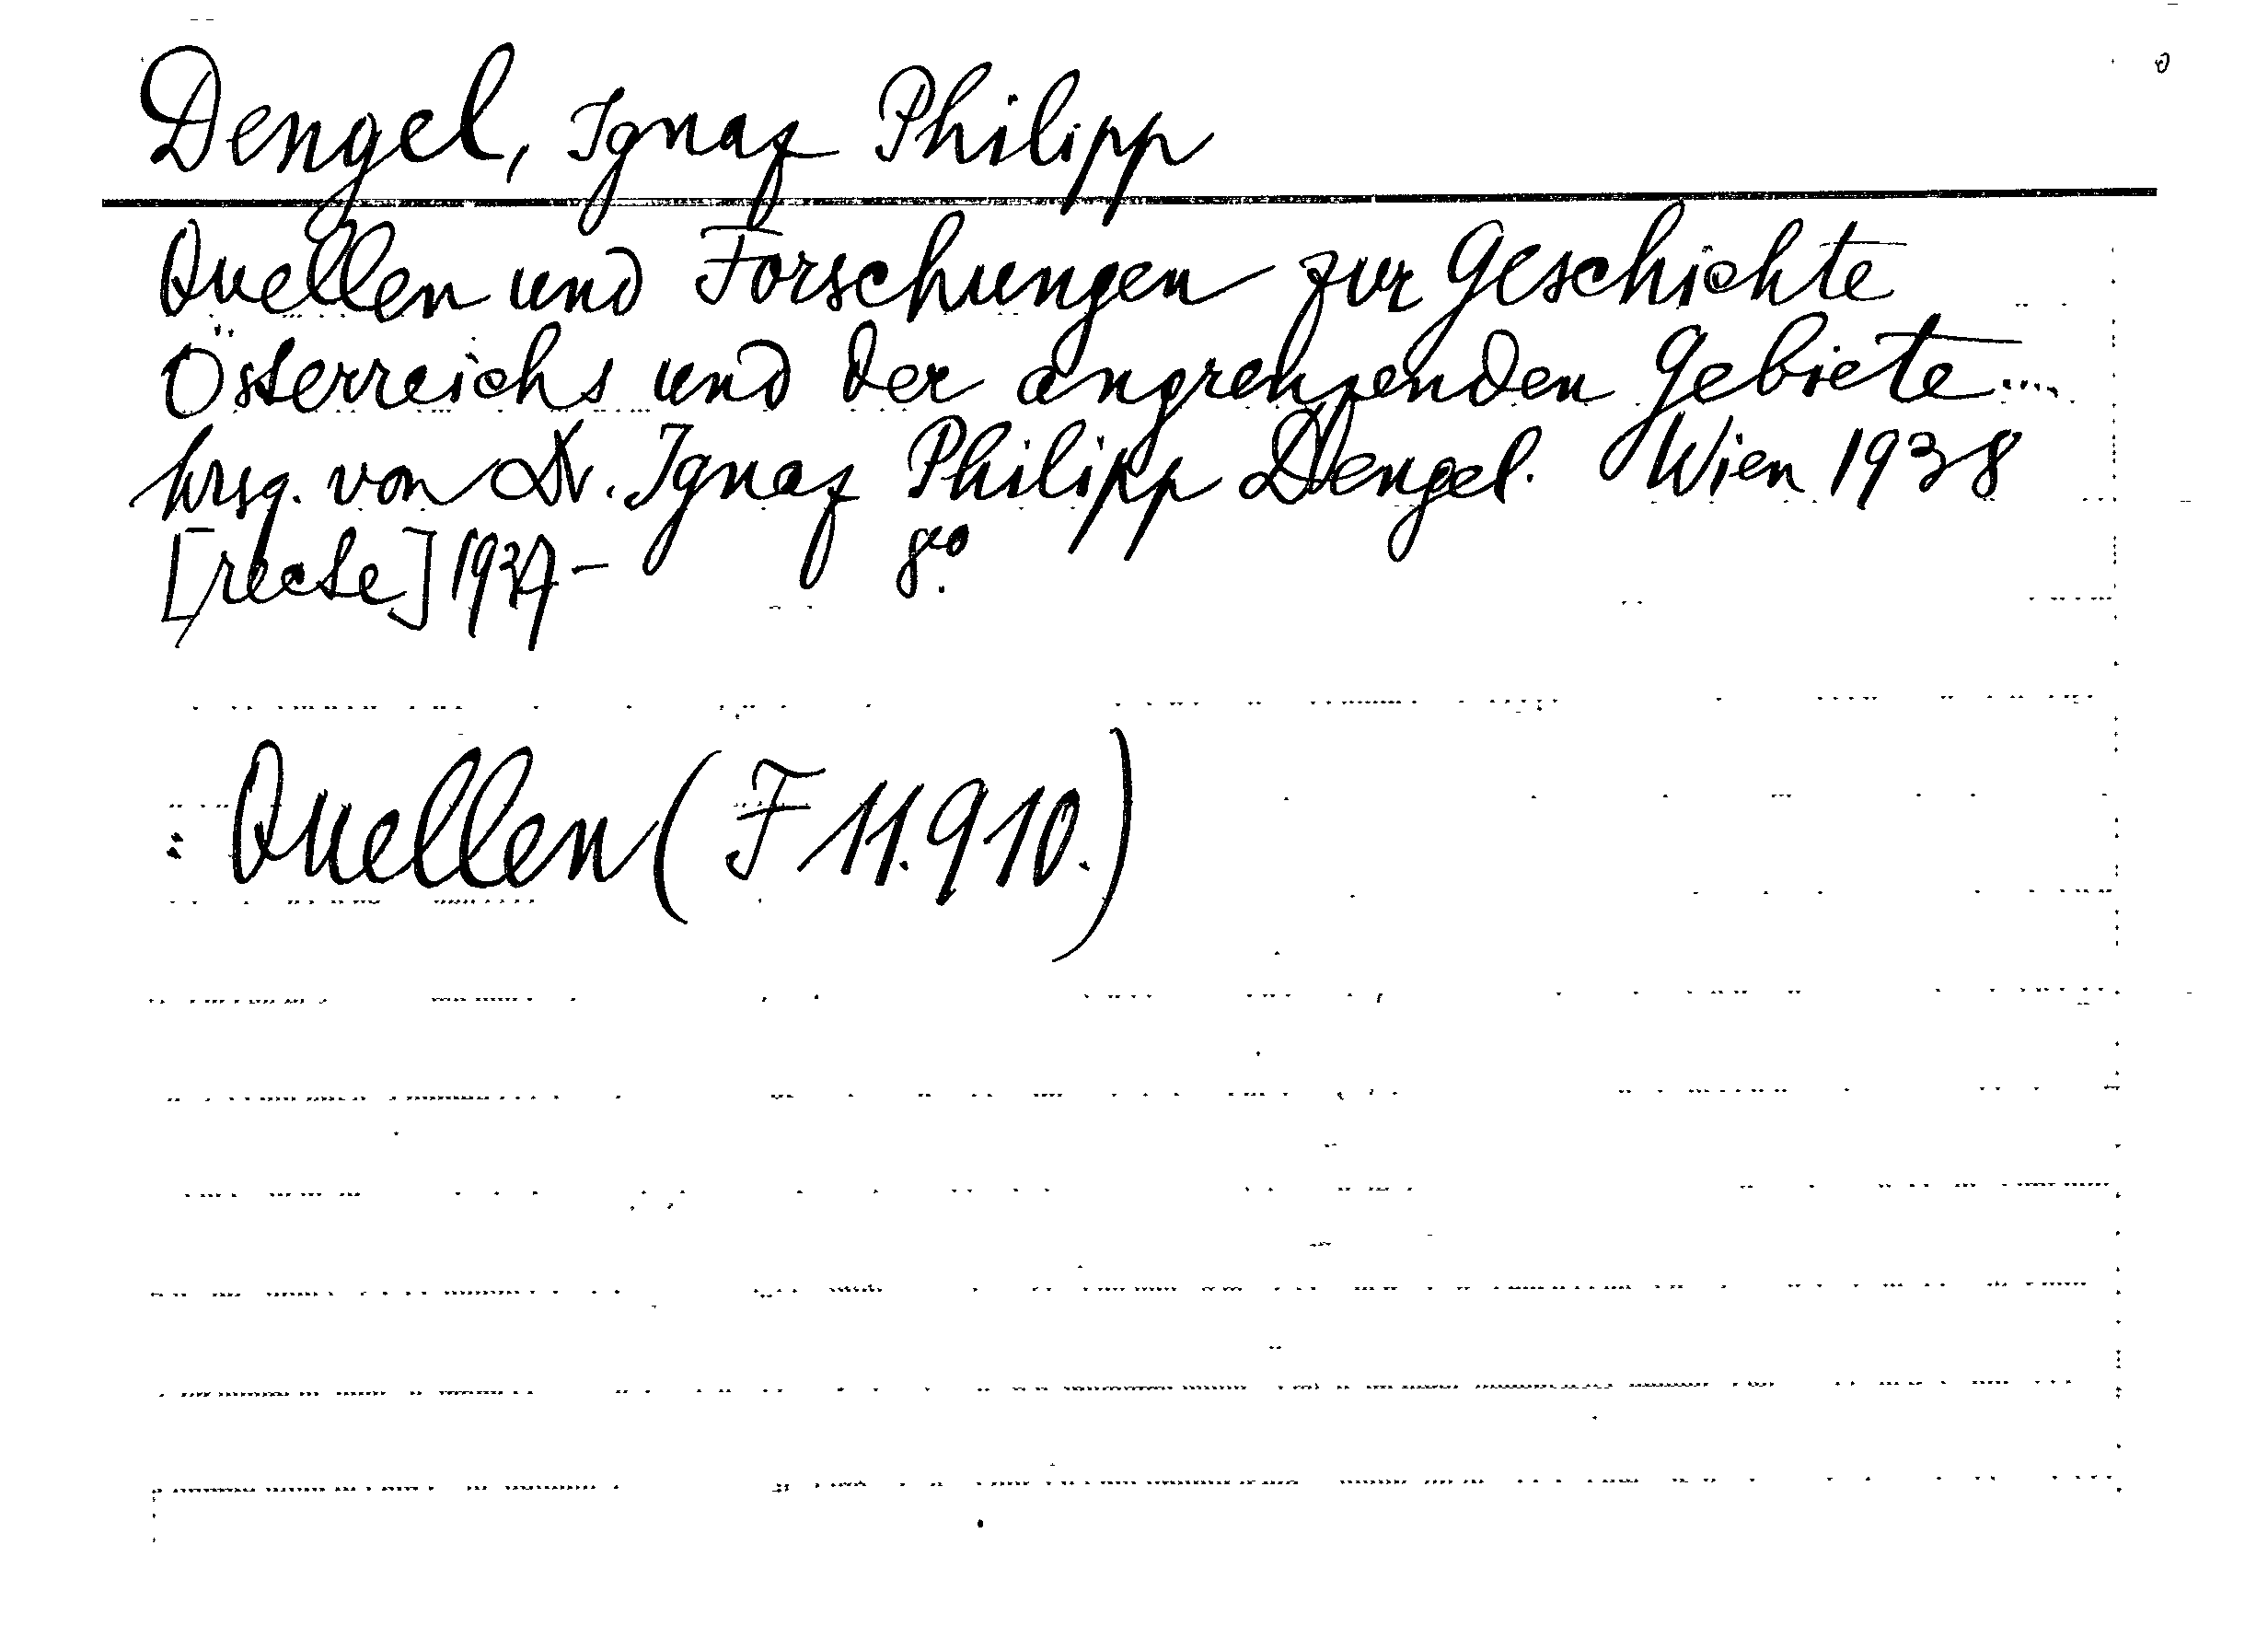 Dengel, Ignaz Philipp
Quellen und Forschungen zur Geschichte
Österreichs und der angrenzenden Gebiete....
hrsg. von Dr. Ignaz Philipp Dengel. Wien 1938
[recte] 1937- 8°.
: Quellen (F 11.910.)